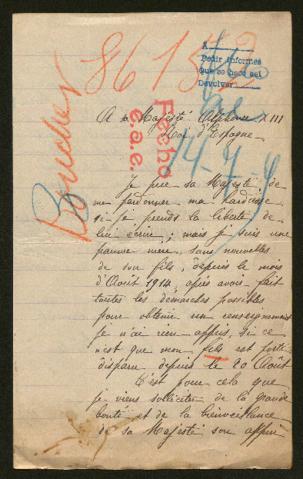 86152
A
Pedir informes
que se hace así
Devolver
Boucher
Fecho
e.a.e.
A sa Majesté Alphonse XIII
Roi d'Espagne
14-7
Je prie sa Majesté, de
me pardonner ma hardiesse
si je prends la liberté de
lui écrire; mais je suis une
pauvre mère, sans nouvelles
de son fils, depuis le mois
d'Août 1914, après avoir fait
toutes les demandes possibles
pour obtenir un renseignement
je n'ai rien appris, si ce
n'est que mon fils est porté
disparu depuis le 20 Août
C'est pour cela que
je viens solliciter de la grande
bonté et de la bienveillance
de sa Majesté son appui